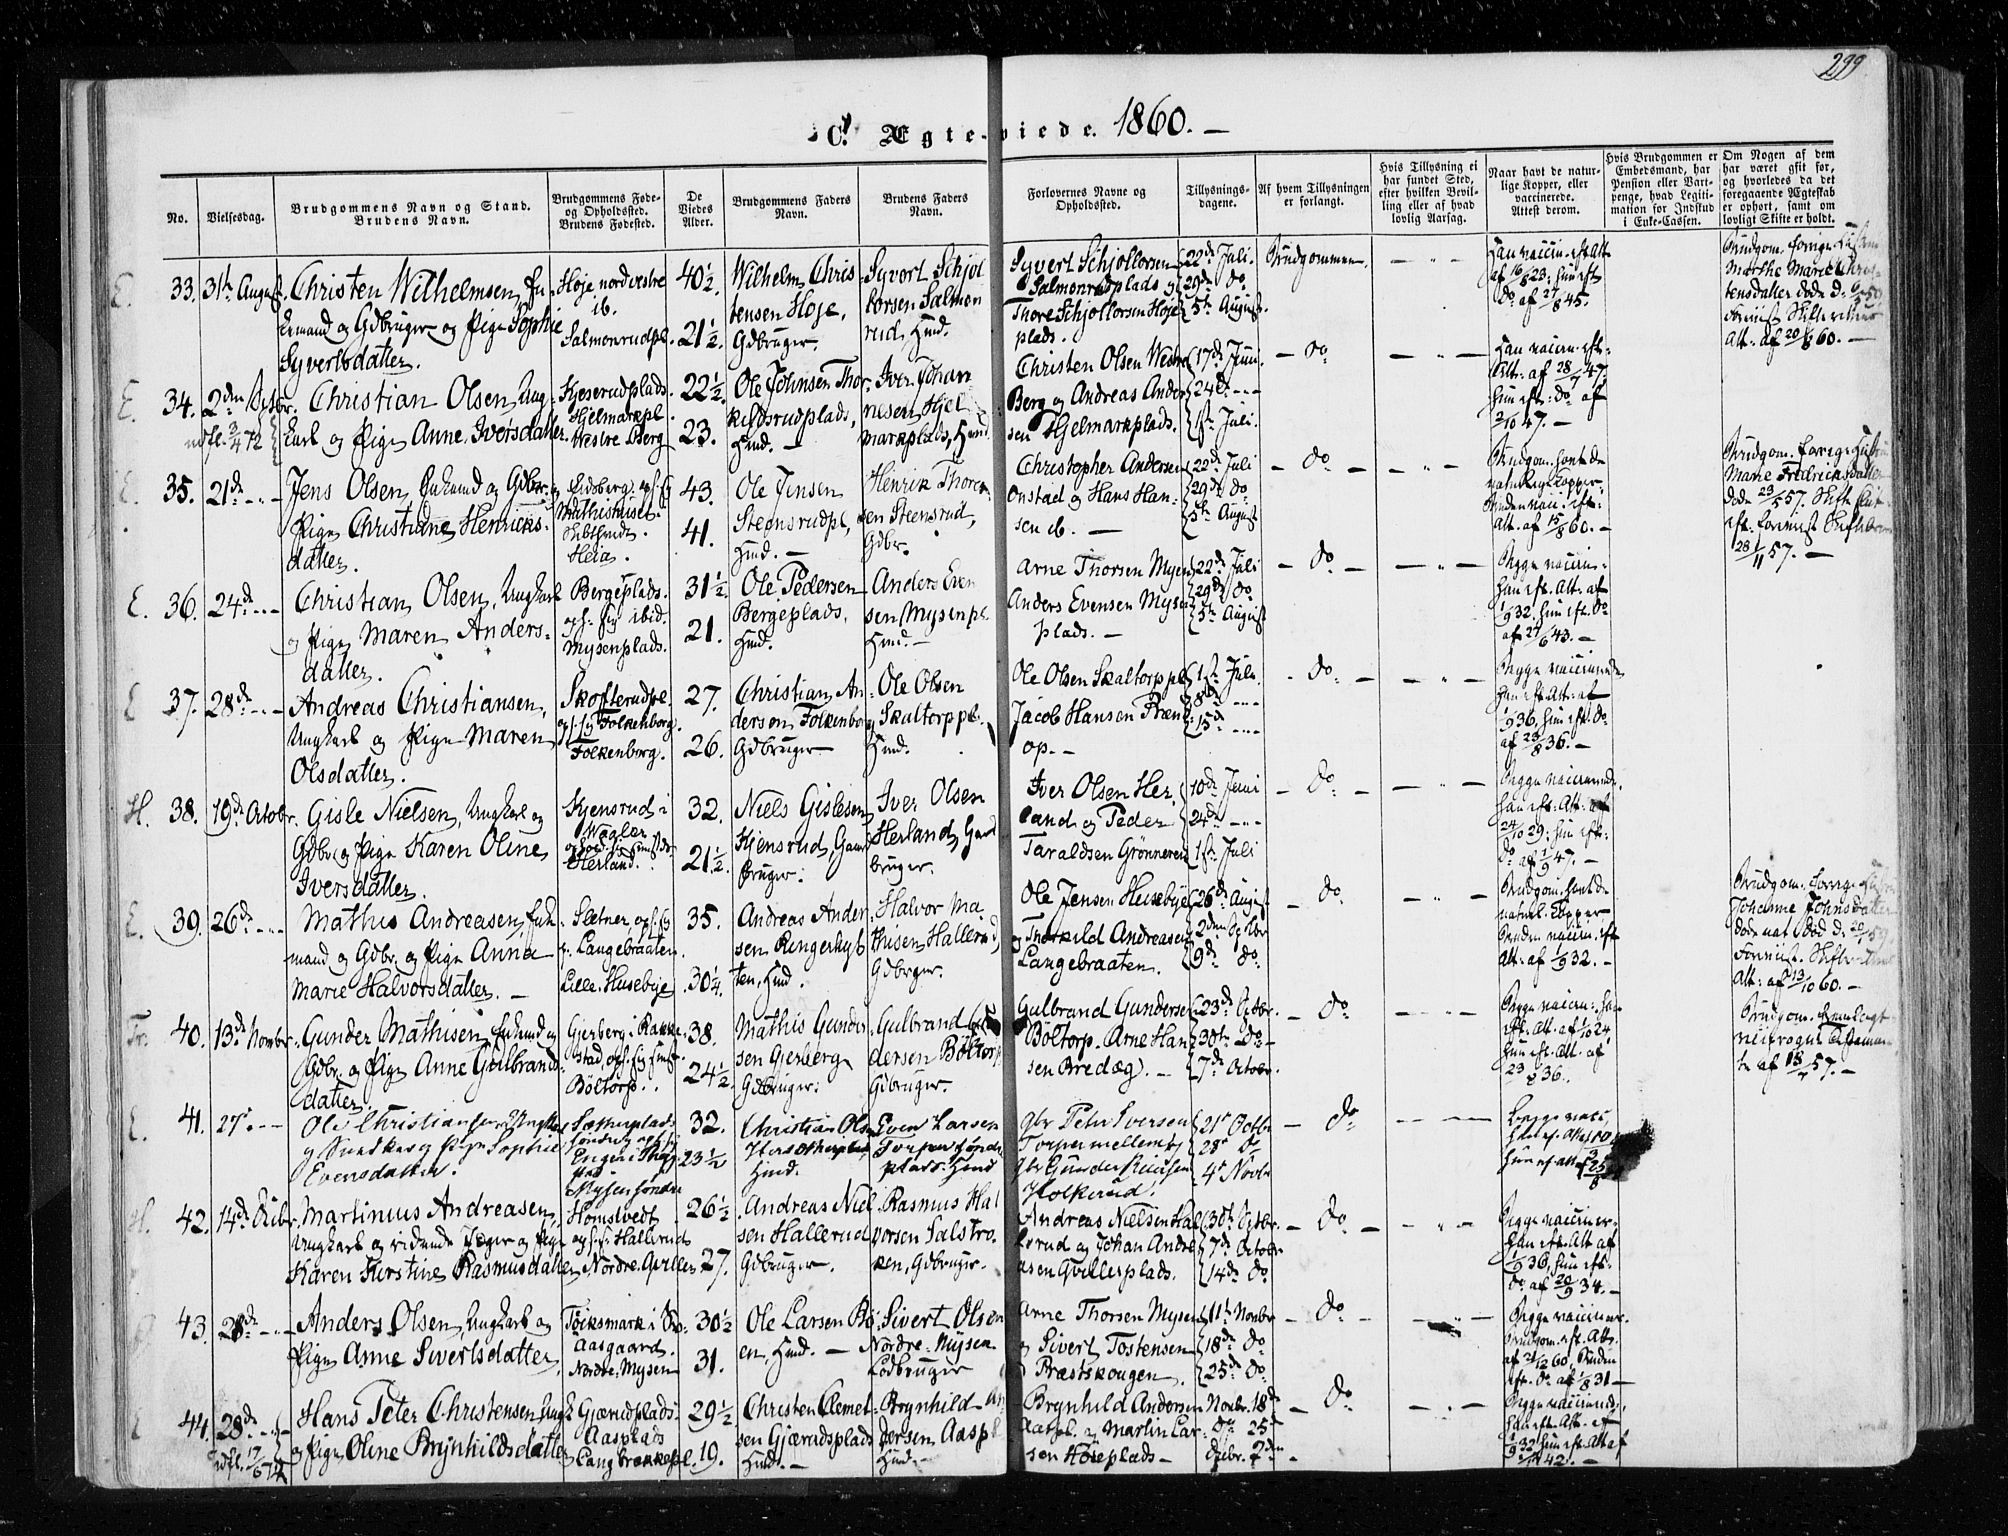 299
C. Ægteviede. 1860. —
No.
Vielsesdag.
Brudgommens Navn og Stand.
Brudens Navn.
Brudgommens Føde-
og Opholdsted.
Brudens Fødested.
De
Viedes
Alder.
Brudgommens Faders
Navn.
Brudens Faders
Navn.
Forlovernes Navne og
Opholdssted.
Tillysnings-
dagene.
Af hvem Tillysningen
er forlangt.
Hvis Tillysning ei
har fundet Sted,
efter hvilken Bevil-
ling eller af hvad
lovlig Aarsag.
Naar havt de natur-
lige Kopper, eller
vaccinerede.
Attest derom.
Hvis Brudgommen er
Embedsmand, har
Pension eller Vart-
penge, hvad Legiti-
mation for Indskud
i Enke-Cassen.
Om Nogen af dem
har været gift før,
og hvorledes da det
foregaaende Ægteskab
er ophørt, samt om
lovligt Skifte er holdt.
E. 33. 31te August.
Christen Wilhelmsen, En-
kemand og Gdbruger og Pige Sophie
Syvertsdatter.
Høje nordvestre
ib.
Salmonrudpl.
40½
21½.
Wilhelm Chris
tensen Høje,
Gdbruger.
Syvert Schjol
torsen Salmon
rud, Hmd.
Syvert Schjoltorsen
Salmonrudplads og
Thore Schjoltorsen Høje
plads.
22de Juli.
29de do
5te August.
Brudgommen.
Han vaccin. eft. Att
af 16/8 23; hun eft
do af 27/8 45.
Brudgom. forrige Hustru
Marthe Marie Chris-
tensdatter døde d.
Att. af 20/8 60. —
E. 34. 2den Octbr.
udfl. 3/4 72
Christian Olsen, Ung-
karl og Pige Anne Iversdatter.
Kjeserudplads.
Hjelmarkpl.
Vestre Berg
22½.
23.
Ole Johnsen Thor-
kildsrudplads,
Hmd. —
Iver Johan
nesen Hjel
markplads, Hmd.
Christen Olsen Westre
Berg og Andreas Ander
sen Hjelmarkplads.
17de Juni.
24de —
1ste Juli.
— do —
Han vaccin. eft.
Att. af 28/7 47.
hun eft. do af
2/10 47. —
E. 35. 21de —
Jens Olsen, Enkemand og Gdbr. og
Pige Christiane Henriks-
datter.
Eidsberg, oph. sig
Mathishuset.
Heia.
43.
41.
Ole Jensen
Stensrudpl,
Hmd. —
Henrik Thores-
sen Steensrud,
Gdbr.
Christopher Andersen
Onstad og Hans Han-
sen ib. —
22de Juli
29de do
5te August
— do —
Brudgom. havt de
naturlige Kopper.
Bruden vacc. eft.
Att. af 15/8 60. —
Brudgom. forrige Hustru
Marie Fredriksdatter
døde 23/5 57. Skifte
28/11 57. —
E. 36. 24de —
Christian Olsen, Ungkarl
og Pige Maren Anders-
datter.
Bergeplads.
oph. sig ibid.
Mysenplads.
31½.
21.
Ole Pedersen
Bergeplads,
Hmd.
Anders Even
sen Mysenpl.
Hmd. —
Arne Thorsen Mysen
Anders Evensen Mysen
plads. —
22de Juli
29de do
5te August
— do —
Begge vaccin.
han eft. Att. af
1/9 32. hun eft. do
af 27/6 43. —
E 37. 28de —
Andreas Christiansen,
Ungkarl og Pige Maren
Olsdatter.
Skofterudpl.
oph. sig Folkenborg.
Folkenborg.
27.
26.
Christian An-
dersen Folkenborg
Gdbruger
Ole Olsen
Skaltorppl.
Hmd.
Ole Olsen Skaltorppl
Jacob Hansen Præn
op. —
1ste Juli
8de —
15de —
do —
Begge vaccinerede
han eft. Att. af
1/9 36, hun eft. do
af 23/8 36. —
H. 38. 19de Octobr.
Gisle Nielsen, Ungkarl og
Gdbr. og Pige Karen Oline
Iversdatter.
Kjensrud i
Wagler
Herland.
32.
21½.
Niels Gislesen
Kjensrud, Gaard
bruger.
Iver Olsen
Herland, Gaard
bruger.
Iver Olsen Her,
land og Peder
Taraldsen Grønneren
10de Juni
24de —
1ste Juli
— do —
Begge vaccinerede.
han eft. Att. af
24/10 29; hun eft.
do af 1/9 47. —
E. 39. 26de —
Mathis Andreasen, Enke
mand og Gdbr. og Pige Anna
Marie Halvorsdatter. —
Sletner, oph. sig
p. Langebraaten.
Lille. Husebye
35.
30¼.
Andreas Ander
sen Ringerhyt
ten, Hmd.
Halvor Ma
thisen Hallerud
Gdbrger.
Ole Jensen Husebye
og Thorkild Andreasen
Langebraaten.
26de August
2den Septbr
9de do
— do —
Brudgom. havt de
naturl. Kopper
Bruden vaccin. eft
Att. af 1/9 32. —
Brudgom. forrige Hustru
Johanne Johnsdatter
Att. af 13/10 60. —
Fr. 40. 13de Novmbr.
Gunder Mathisen, Enkemd og
Gdbr. og Pige Anne Gulbrands
datter
Gjerberg i Rakke
stad, oph. sig
Bøltorp.
38.
24½.
Mathis Gunder
sen Gjerberg
Gdbruger.
Gulbrand Gun
dersen Bøltorp
Gdbruger.
Gulbrand Gundersen
Bøltorp. Arne Han
sen Bredæg. —
23de Septbr.
30te do —
7de Octobr.
— do —
Begge vaccin. han
eft. Att. af 1/10 24
hun eft. Att. af
23/8 36.
Brudgom. fremlagt
te af 18/7 57. —
E. 41. 27de —
Ole Christiansen Ungkarl
og Snedker og Pige Sophie
Evensdatter.
Sætherplads
søndre oph. sig
Mysensøndre
32.
23½
Christian Olsen
Hmd.
Even Larsen
Torpersøndre
plads. Hmd
Gbr Peter Iversen
Torpermellem og
Gbr Gunder Reiersen
Holkerud.
21de Octbr
28de do
4de Novbr
— do
Begge vacc.
H. 42. 14de Decbr.
Martinius Andreasen,
Ungkarl og ridende Jæger og Pige
Karen Kirstine Rasmusdatter
Homstvedt
oph. sig Hallerud
Nordre Qviller
26½
27.
Andreas Niel
sen Hallerud
Gdbruger.
Rasmus Hal
vorsen Salstro-
ken, Gdbruger.
Andreas Nielsen Hal
lerud og Johan Andre
asen Qvillerplads.
30te Septbr.
7de Octobr
14de do
— do —
Begge vacciner.
han eft. Att. af
1/9 36, hun eft.
do af 20/9 34. —
43. 28de —
Anders Olsen, Ungkarl og
Pige Anne Sivertsdatter
Tocksmark i
Aasgaard.
Nordre. Mysen
30½
31.
Ole Larsen Bø-
en, Hmd. —
Sivert Olsen
Nordre. Mysen
Gdbruger
Arne Thorsen Mysen
og Sivert Tostensen
Præstskougen.
11te Novbr
18de do
25de do
— do —
Begge vacciner.
Brudgom. eft. Att.
af 21/12 60, Bruden
eft. do af 1/8 31 —
44. 28de —
udfl. 17/6 74
Hans Peter Christensen, Ungk
og Pige Oline Brynhildsdatter
Gjærudplads.
Aasplads
Langbrækkepl.
29½
19.
Christen Clemet
sen Gjærudsplads
Hmd. —
Brynhild An
dersen Aaspl
Hmd. —
Brynhild Andersen
Aaspl. og Martin Lar
sen Høieplads —
Novbr. 18de
do 25de
Decbr. 2den
— do —
Begge vaccinerd,
han eft. Att. af
1/9 32 hun eft. Att af